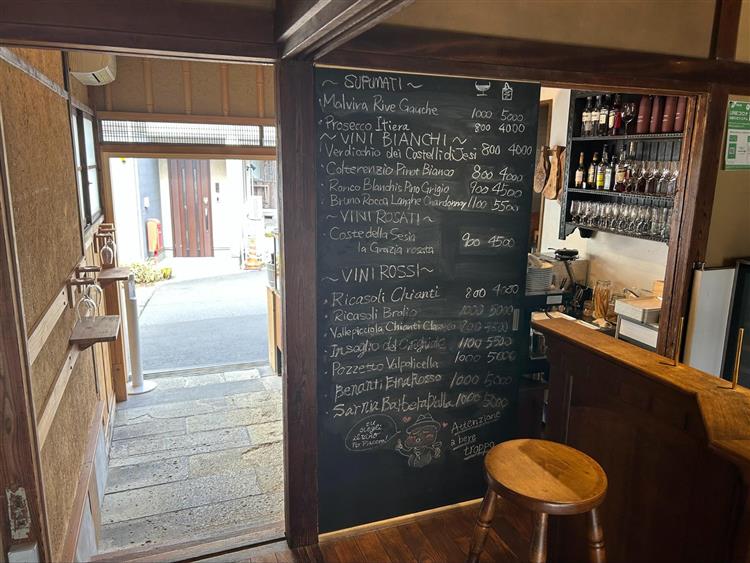 ~ SPUMATI ~
Malvira Rive Gauche 1000 5000
Prosecco Itiera 800 4000
~ VINI BIANCHI ~
Verdicchio dei Castelli di Jesi 800 4000
Colterenzio Pinot Bianco 800 4000
Ronco Blanchis Pino Grigio 900 4500
Bruno Rocca Langhe Chardonnay 1100 5500
~ VINI ROSATI ~
Coste della Sesia
la Grazia rosata 900 4500
~ VINI ROSSI ~
Ricasoli Chianti 800 4000
Ricasoli Brolio 1000 5000
Vallepicciola Chianti Classico 900 4500
Insoglio del Cinghiale 1100 5500
Pozzetto Valpolicella 1000 5000
Benanti Etna Rosso 1000 5000
Sarnia Barbera 1000 5000
Attenzione
a bere
troppo